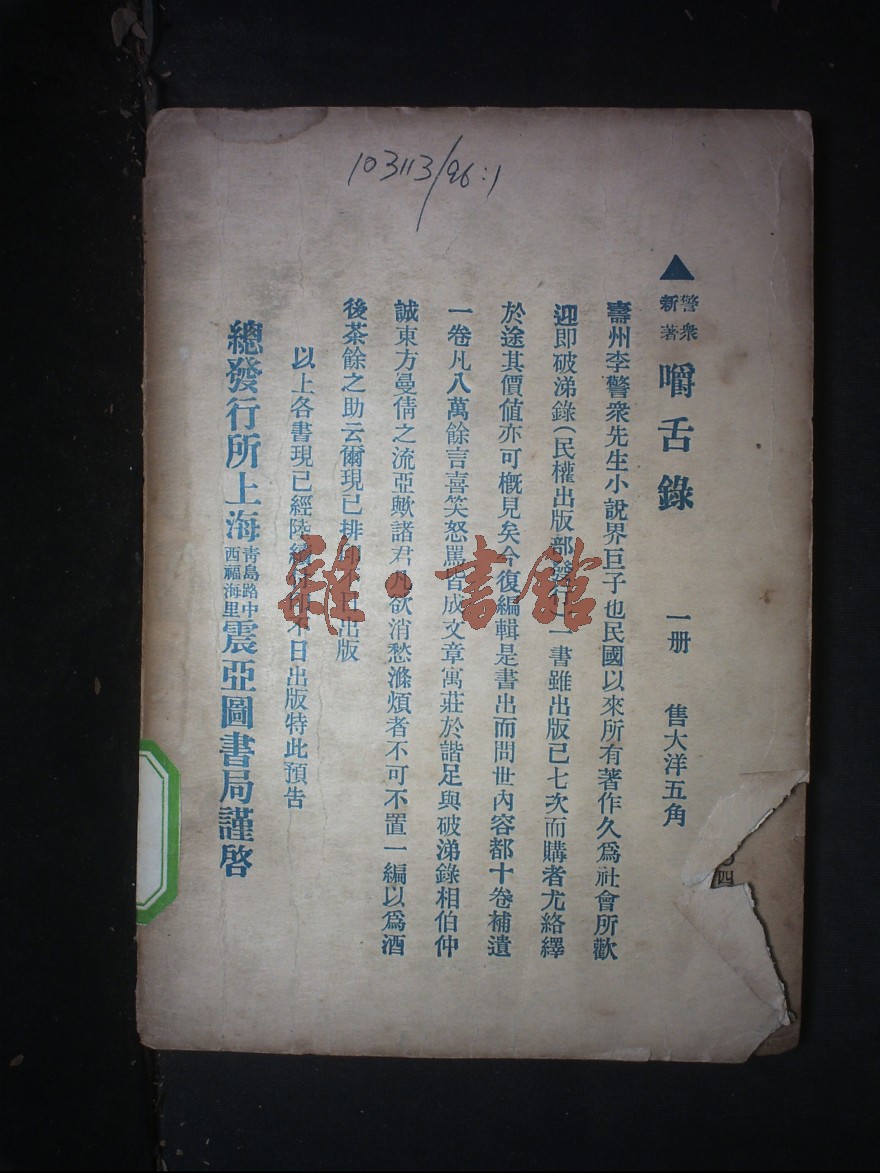 103113/96:1
▲警衆新著 嚼舌錄 一册 售大洋五角
壽州李警衆先生小說界巨子也民國以來所有著作久爲社會所歡
迎即破涕錄(民權出版部發行)一書雖出版已七次而購者尤絡繹
於途其價值亦可概見矣今復編輯是書出而問世內容都十卷補遺
一卷凡八萬餘言喜笑怒罵皆成文章寓莊於諧足與破涕錄相伯仲
誠東方曼倩之流亞歟諸君凡欲消愁滌煩者不可不置一編以爲酒
後茶餘之助云爾現已排 出版
以上各書現已經陸續 不日出版特此預告
總發行所上海靑島路中西福海里震亞圖書局謹啓
四
雜·書館